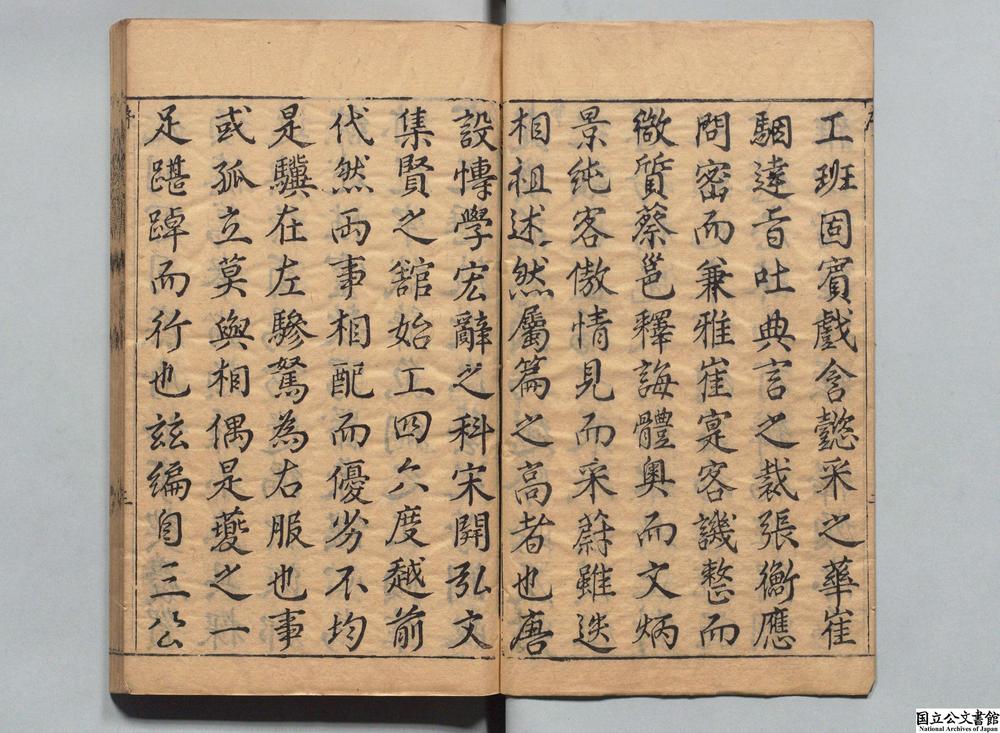 工班固賓戲含懿采之華崔
駰達旨吐典言之裁張衡應
問密而兼雅崔寔客譏整而
微質蔡邕釋誨體奧而文炳
景純客傲情見而采蔚雖迭
相祖述然屬篇之高者也唐
設博學宏辭之科宋開弘文
集賢之舘始工四六度越前
代然兩事相配而優劣不均
是驥在左驂駑為右服也事
或孤立莫與相偶是夔之一
足踸踔而行也茲編自三公
国立公文書館
National Archives of Japan